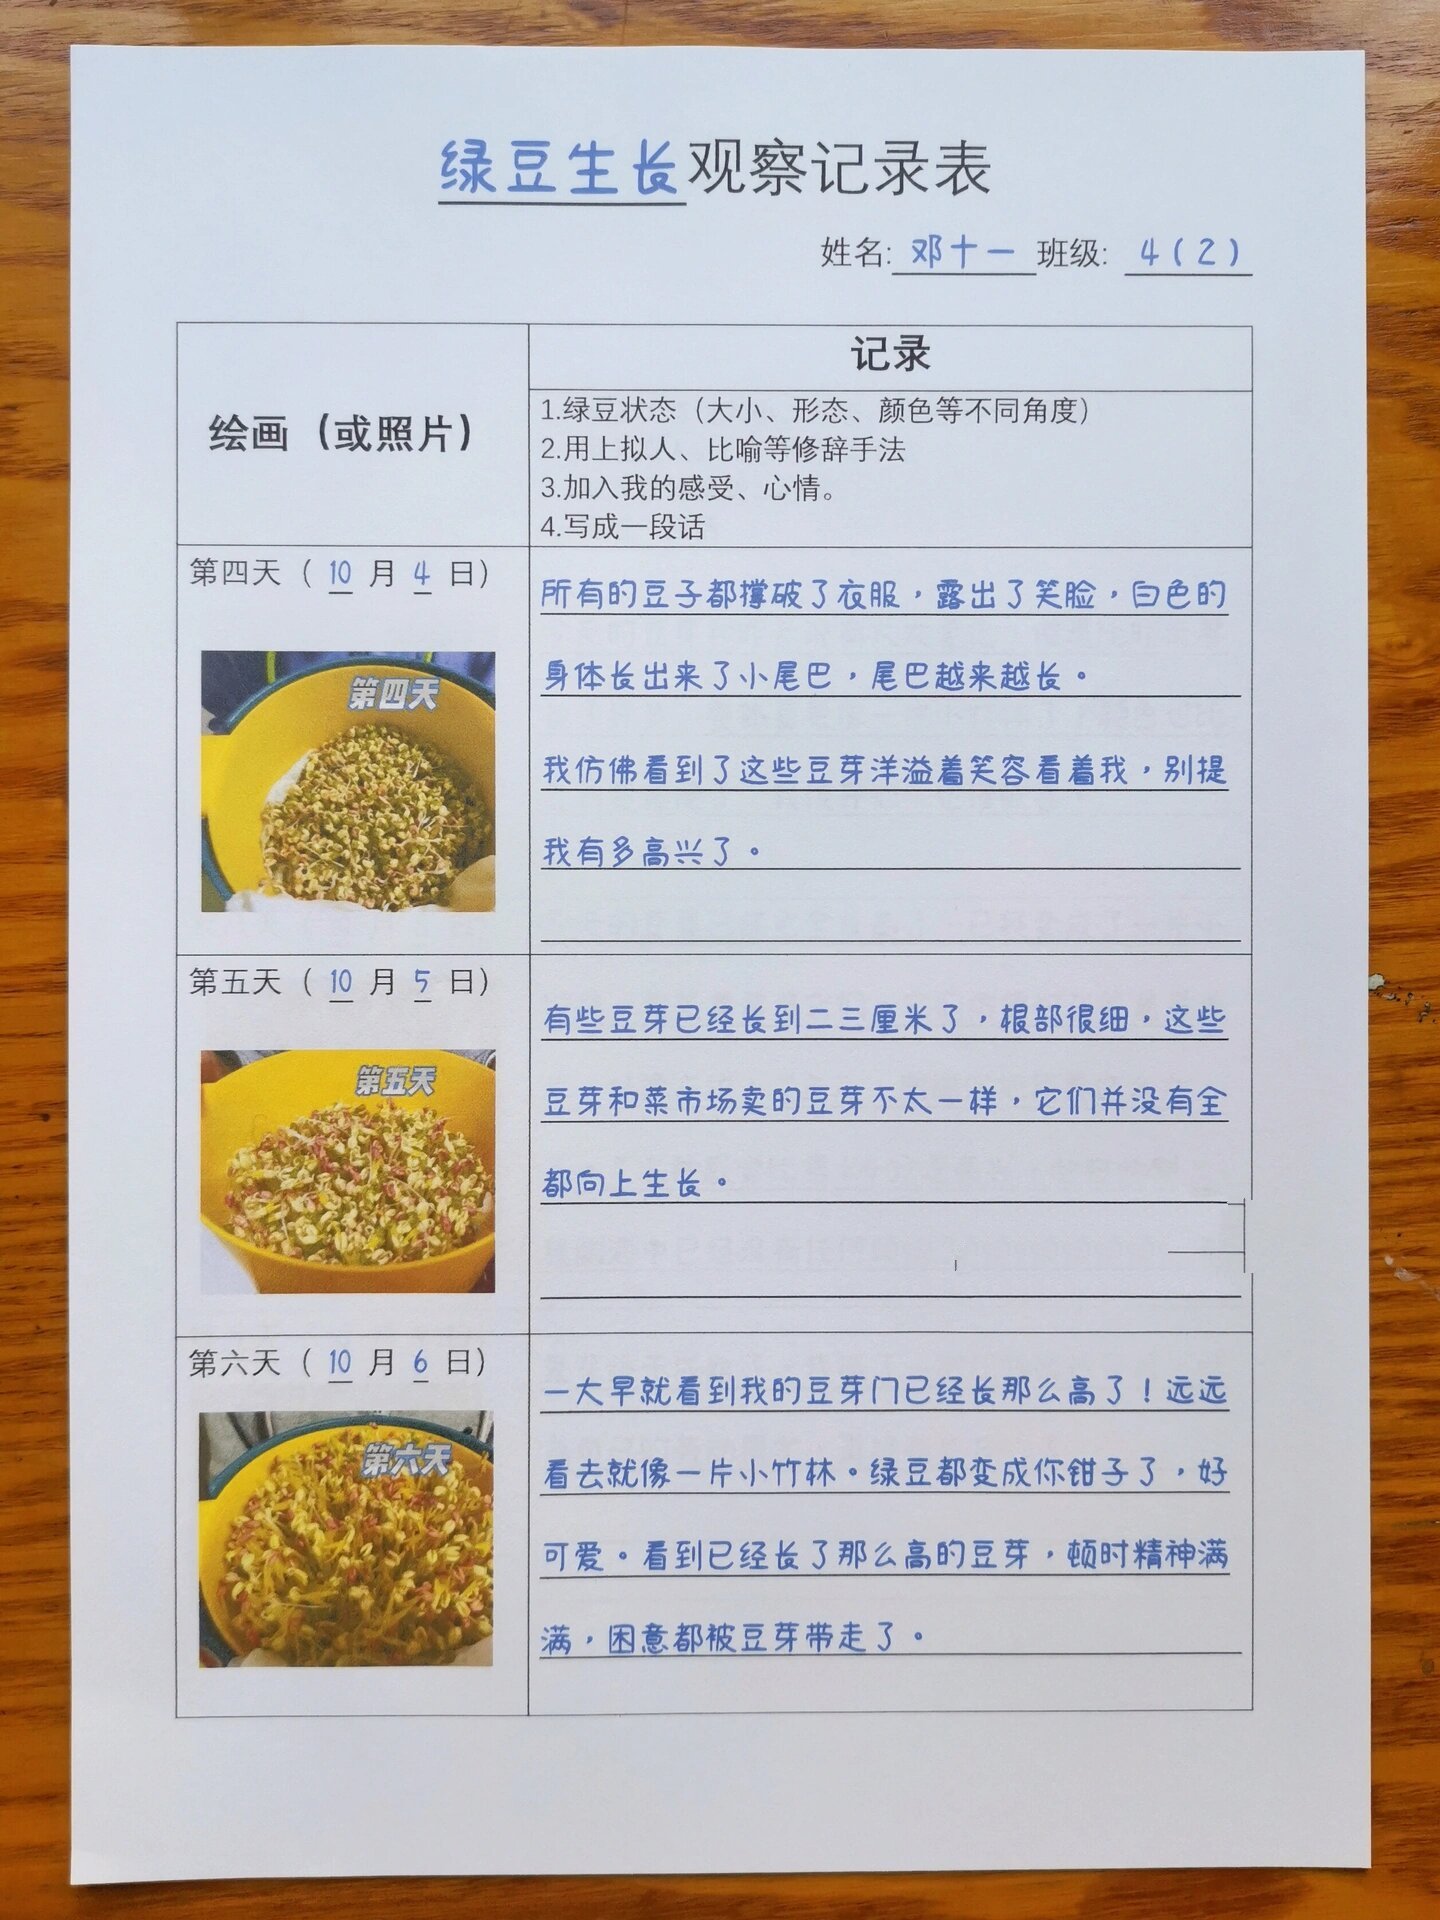 绿豆生长观察记录表
姓名: 邓十一 班级: 4(2)
绘画（或照片）
记录
1.绿豆状态（大小、形态、颜色等不同角度）
2.用上拟人、比喻等修辞手法
3.加入我的感受、心情。
4.写成一段话
第四天（ 10 月 4 日）
第四天
所有的豆子都撑破了衣服，露出了笑脸，白色的
身体长出来了小尾巴，尾巴越来越长。
我仿佛看到了这些豆芽洋溢着笑容看着我，别提
我有多高兴了。
第五天（ 10 月 5 日）
第五天
有些豆芽已经长到二三厘米了，根部很细，这些
豆芽和菜市场卖的豆芽不太一样，它们并没有全
都向上生长。
第六天（ 10 月 6 日）
第六天
一大早就看到我的豆芽门已经长那么高了！远远
看去就像一片小竹林。绿豆都变成你钳子了，好
可爱。看到已经长了那么高的豆芽，顿时精神满
满，困意都被豆芽带走了。